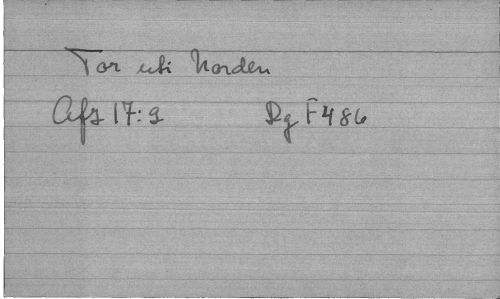 Tor uti Norden
Afz 17:9 Dg F 486